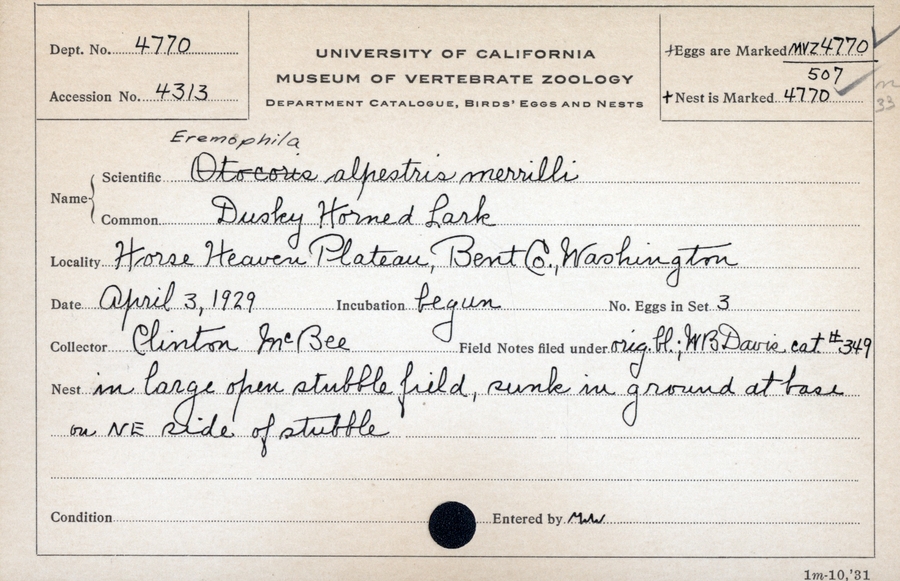 Dept. No. 4770
Accession No. 4313
UNIVERSITY OF CALIFORNIA
MUSEUM OF VERTEBRATE ZOOLOGY
DEPARTMENT CATALOGUE, BIRDS' EGGS AND NESTS
+Eggs are Marked MVZ4770
507
+Nest is Marked 4770
33
Eremophila
Name { Scientific Otocoris alpestris merrilli
Common Dusky Horned Lark
Locality Horse Heaven Plateau, Bent Co., Washington
Date April 3, 1929 Incubation begun No. Eggs in Set 3
Collector Clinton McBee Field Notes filed under orig. bl.; WB Davis cat #349
Nest in large open stubble field, sunk in ground at base
on NE side of stubble
Condition Entered by
1m-10,'31